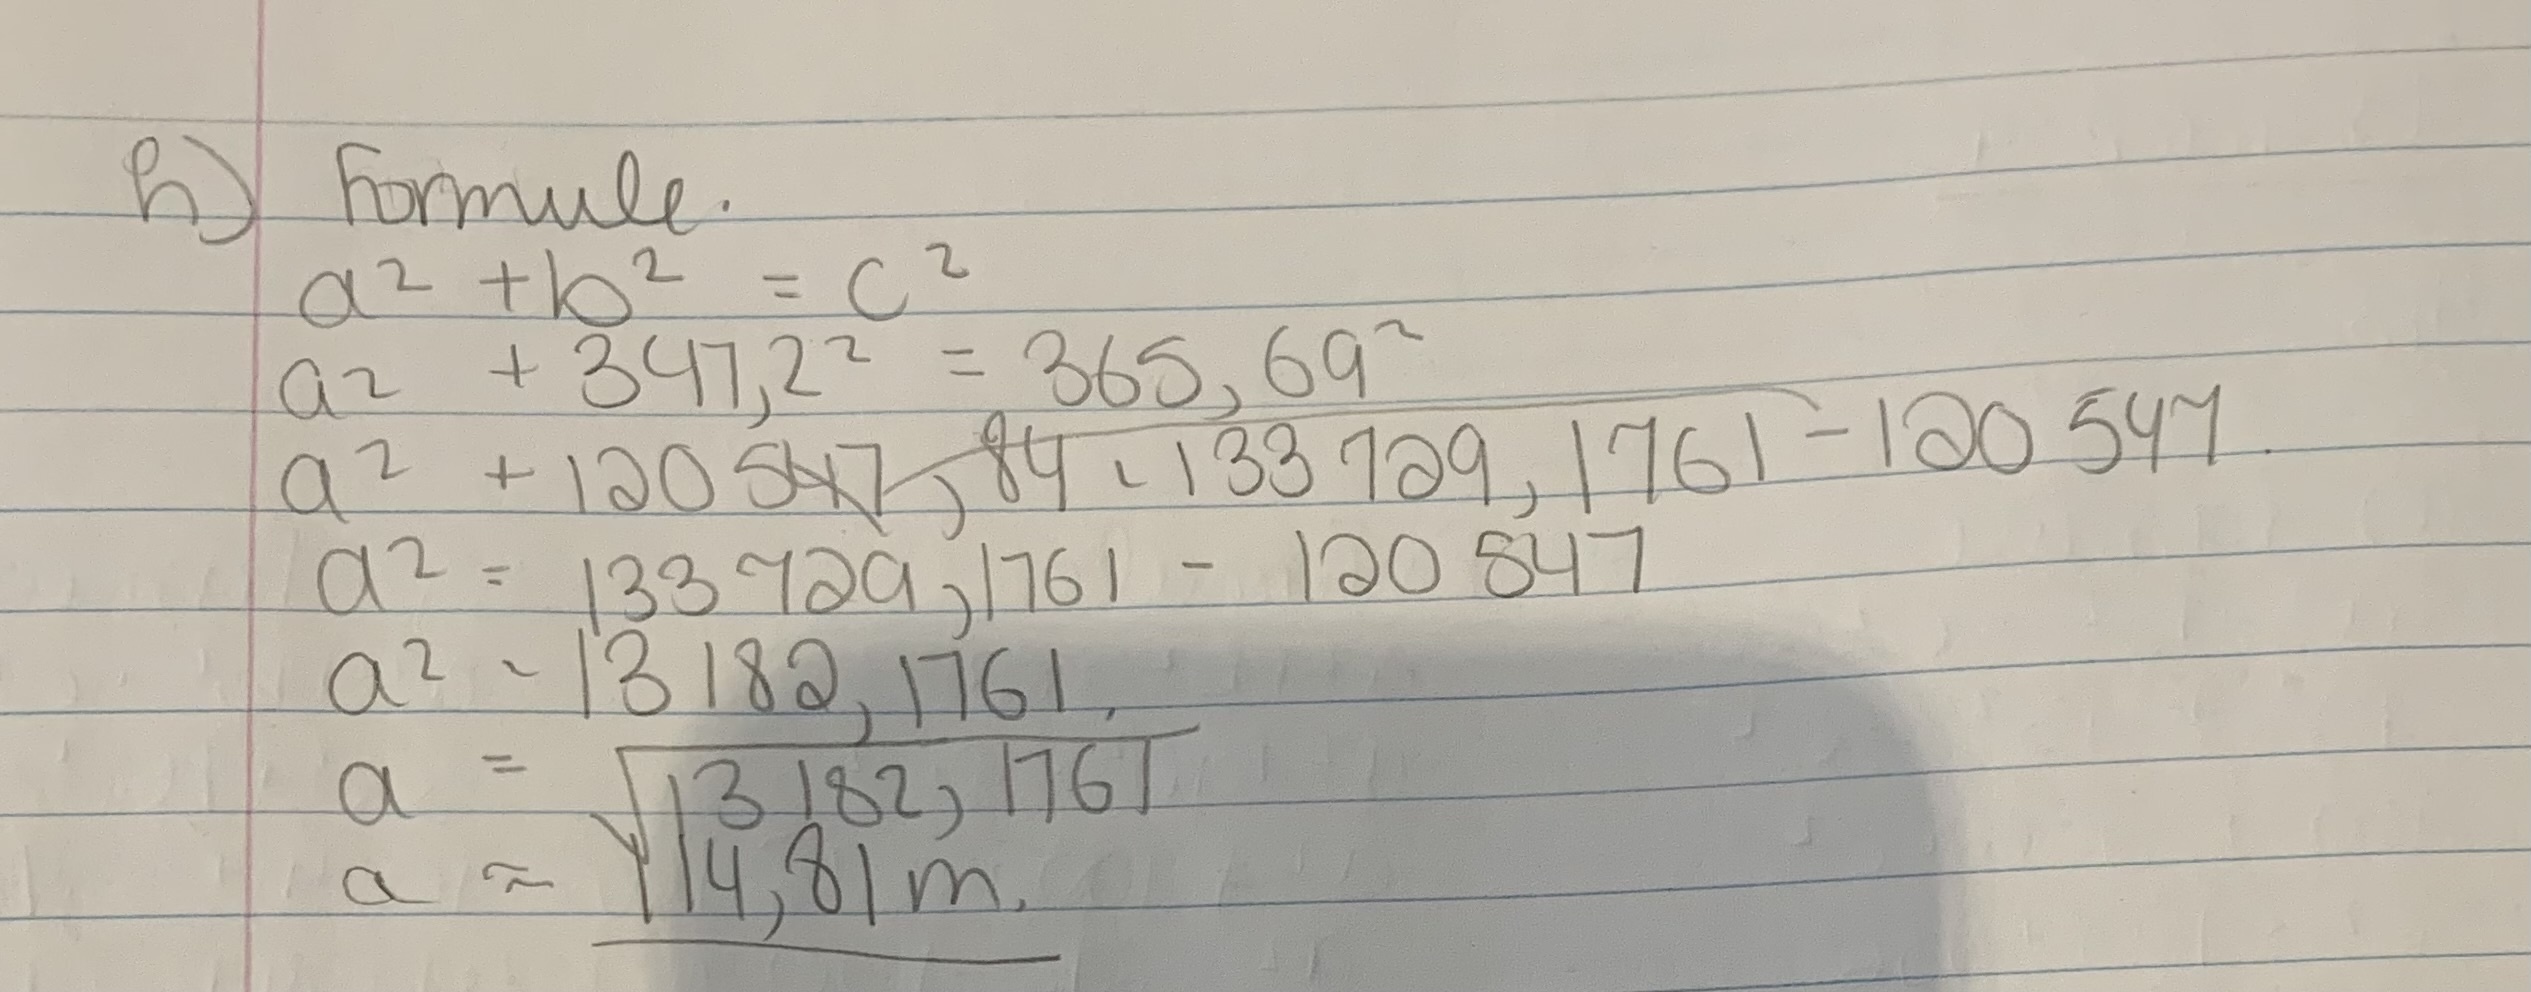 h) Formule.
a² + b² = c²
a² + 347,2² = 365,69²
a² + 120 547,84 = 133 729,1761 - 120 547
a² = 133 729,1761 - 120 547
a² = 13 182,1761.
a = √13 182,1761
a ≈ 114,81 m.